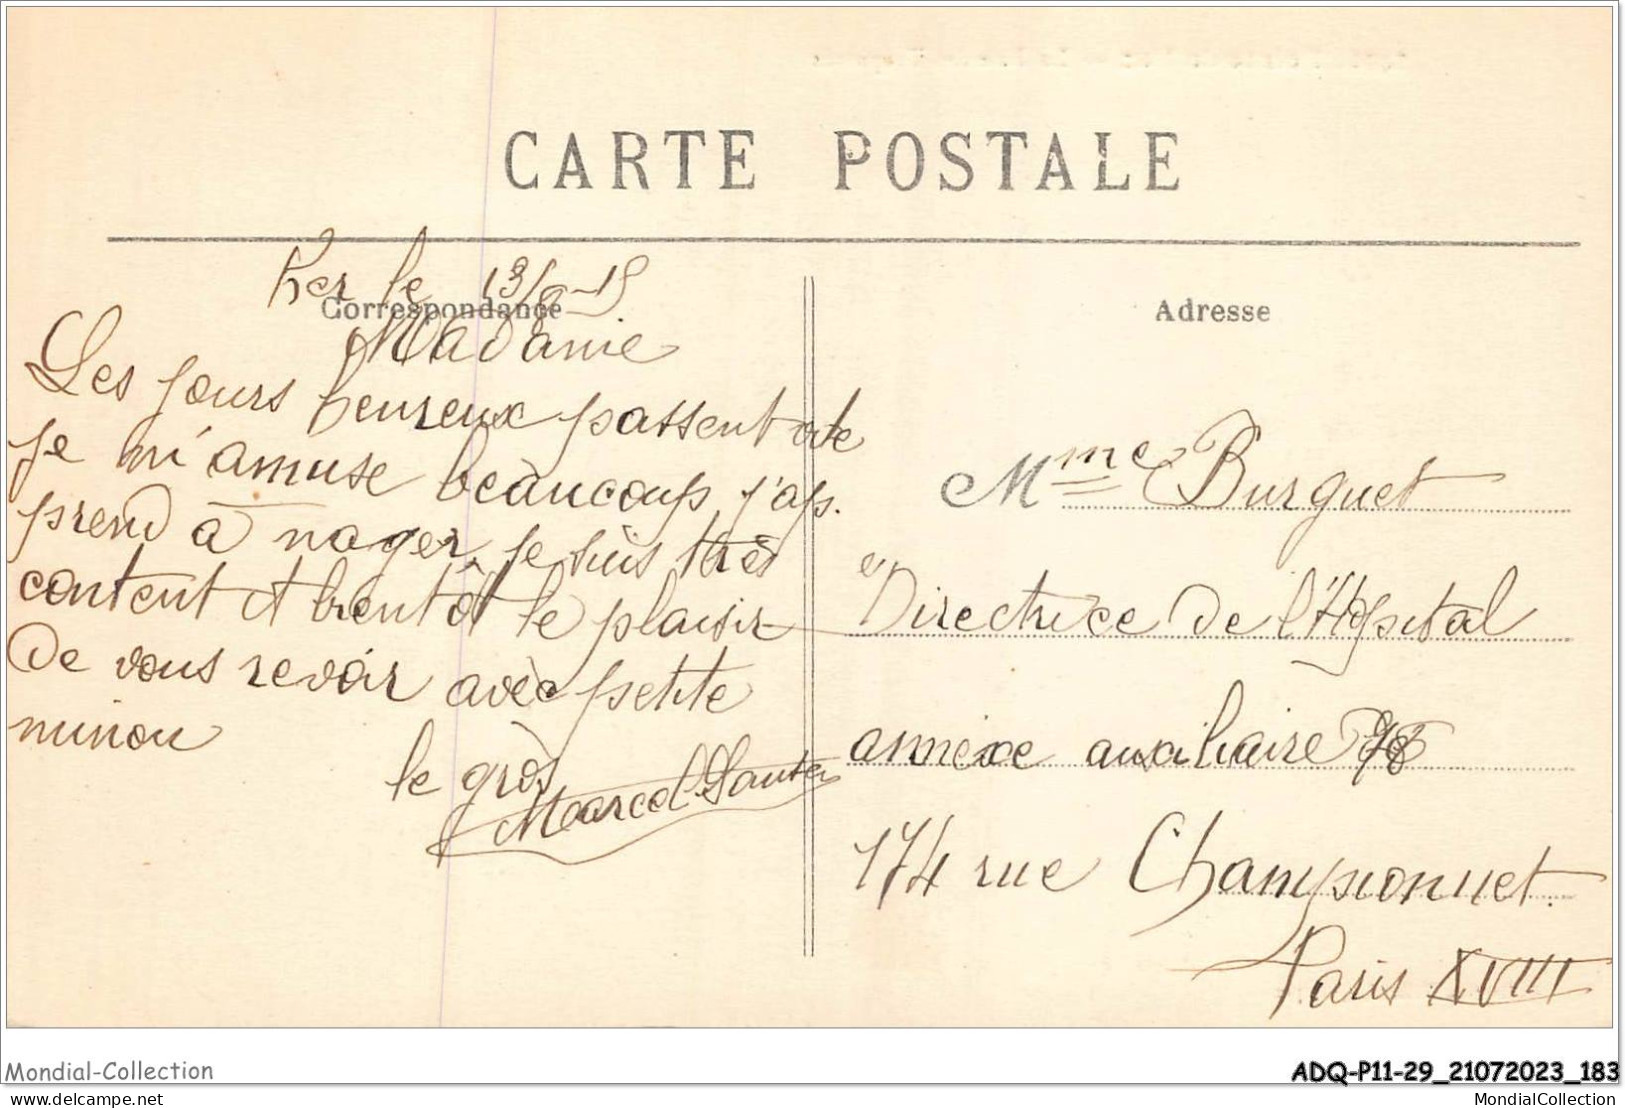 CARTE POSTALE
Ker le 13/8-15
Correspondance
Madame
Les jours heureux passent vite
je m'amuse beaucoup, j'ap.
prend à nager, je suis très
content et bientôt le plaisir
de vous revoir avèc petite
minou
le gros
Marcel
Adresse
Mme Burguet
Directrice de l'Hopital
annexe auxiliaire
174 rue Championnet.
Paris XVIII
Mondial-Collection
ADQ-P11-29_21072023_183
delcampe.net
MondialCollection